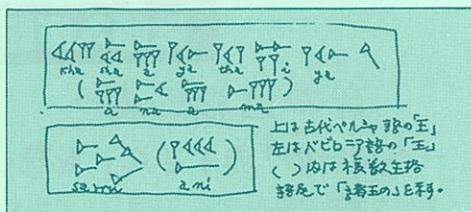 𐎧 𐏁 𐎠 𐎹 𐎰 𐎡 𐎹 𐏐
kha sha a ya tha i ya
( 𐎠 𐎴 𐎠 𐎶 )
a na a ma
sarru ani
上は古代ペルシャ語の「王」
左はバビロニア語の「王」
( )内は複数生格
語尾で「諸王の」を示す。